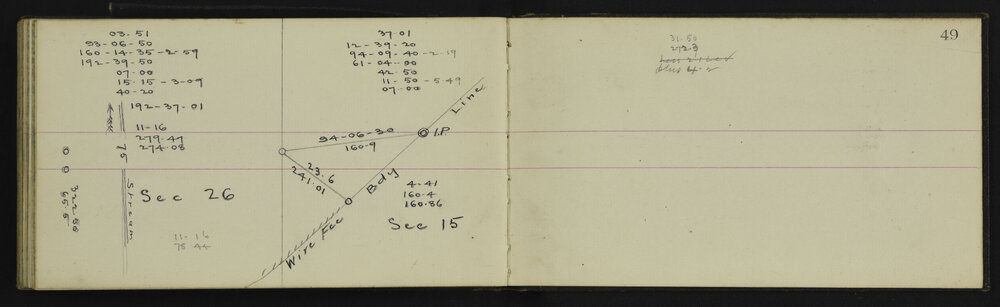 03.51
93-06-50
160-14-35-2-59
192-39-50
07-00
15.15-3-09
40-20
192-37-01
11-16
279.47
274.08
75
Stream
Sec 26
322.50
65.5
11-16
75.44
37-01
12-39-20
94-09-40-2-19
61-04-00
42.50
11-50-5.49
07-00
Line
I.P.
94-06-30
160.9
23.6
241.01
Bdy
4-41
160.4
160.86
Sec 15
Wire Fce
49
31-50
272.9
plus 4.2